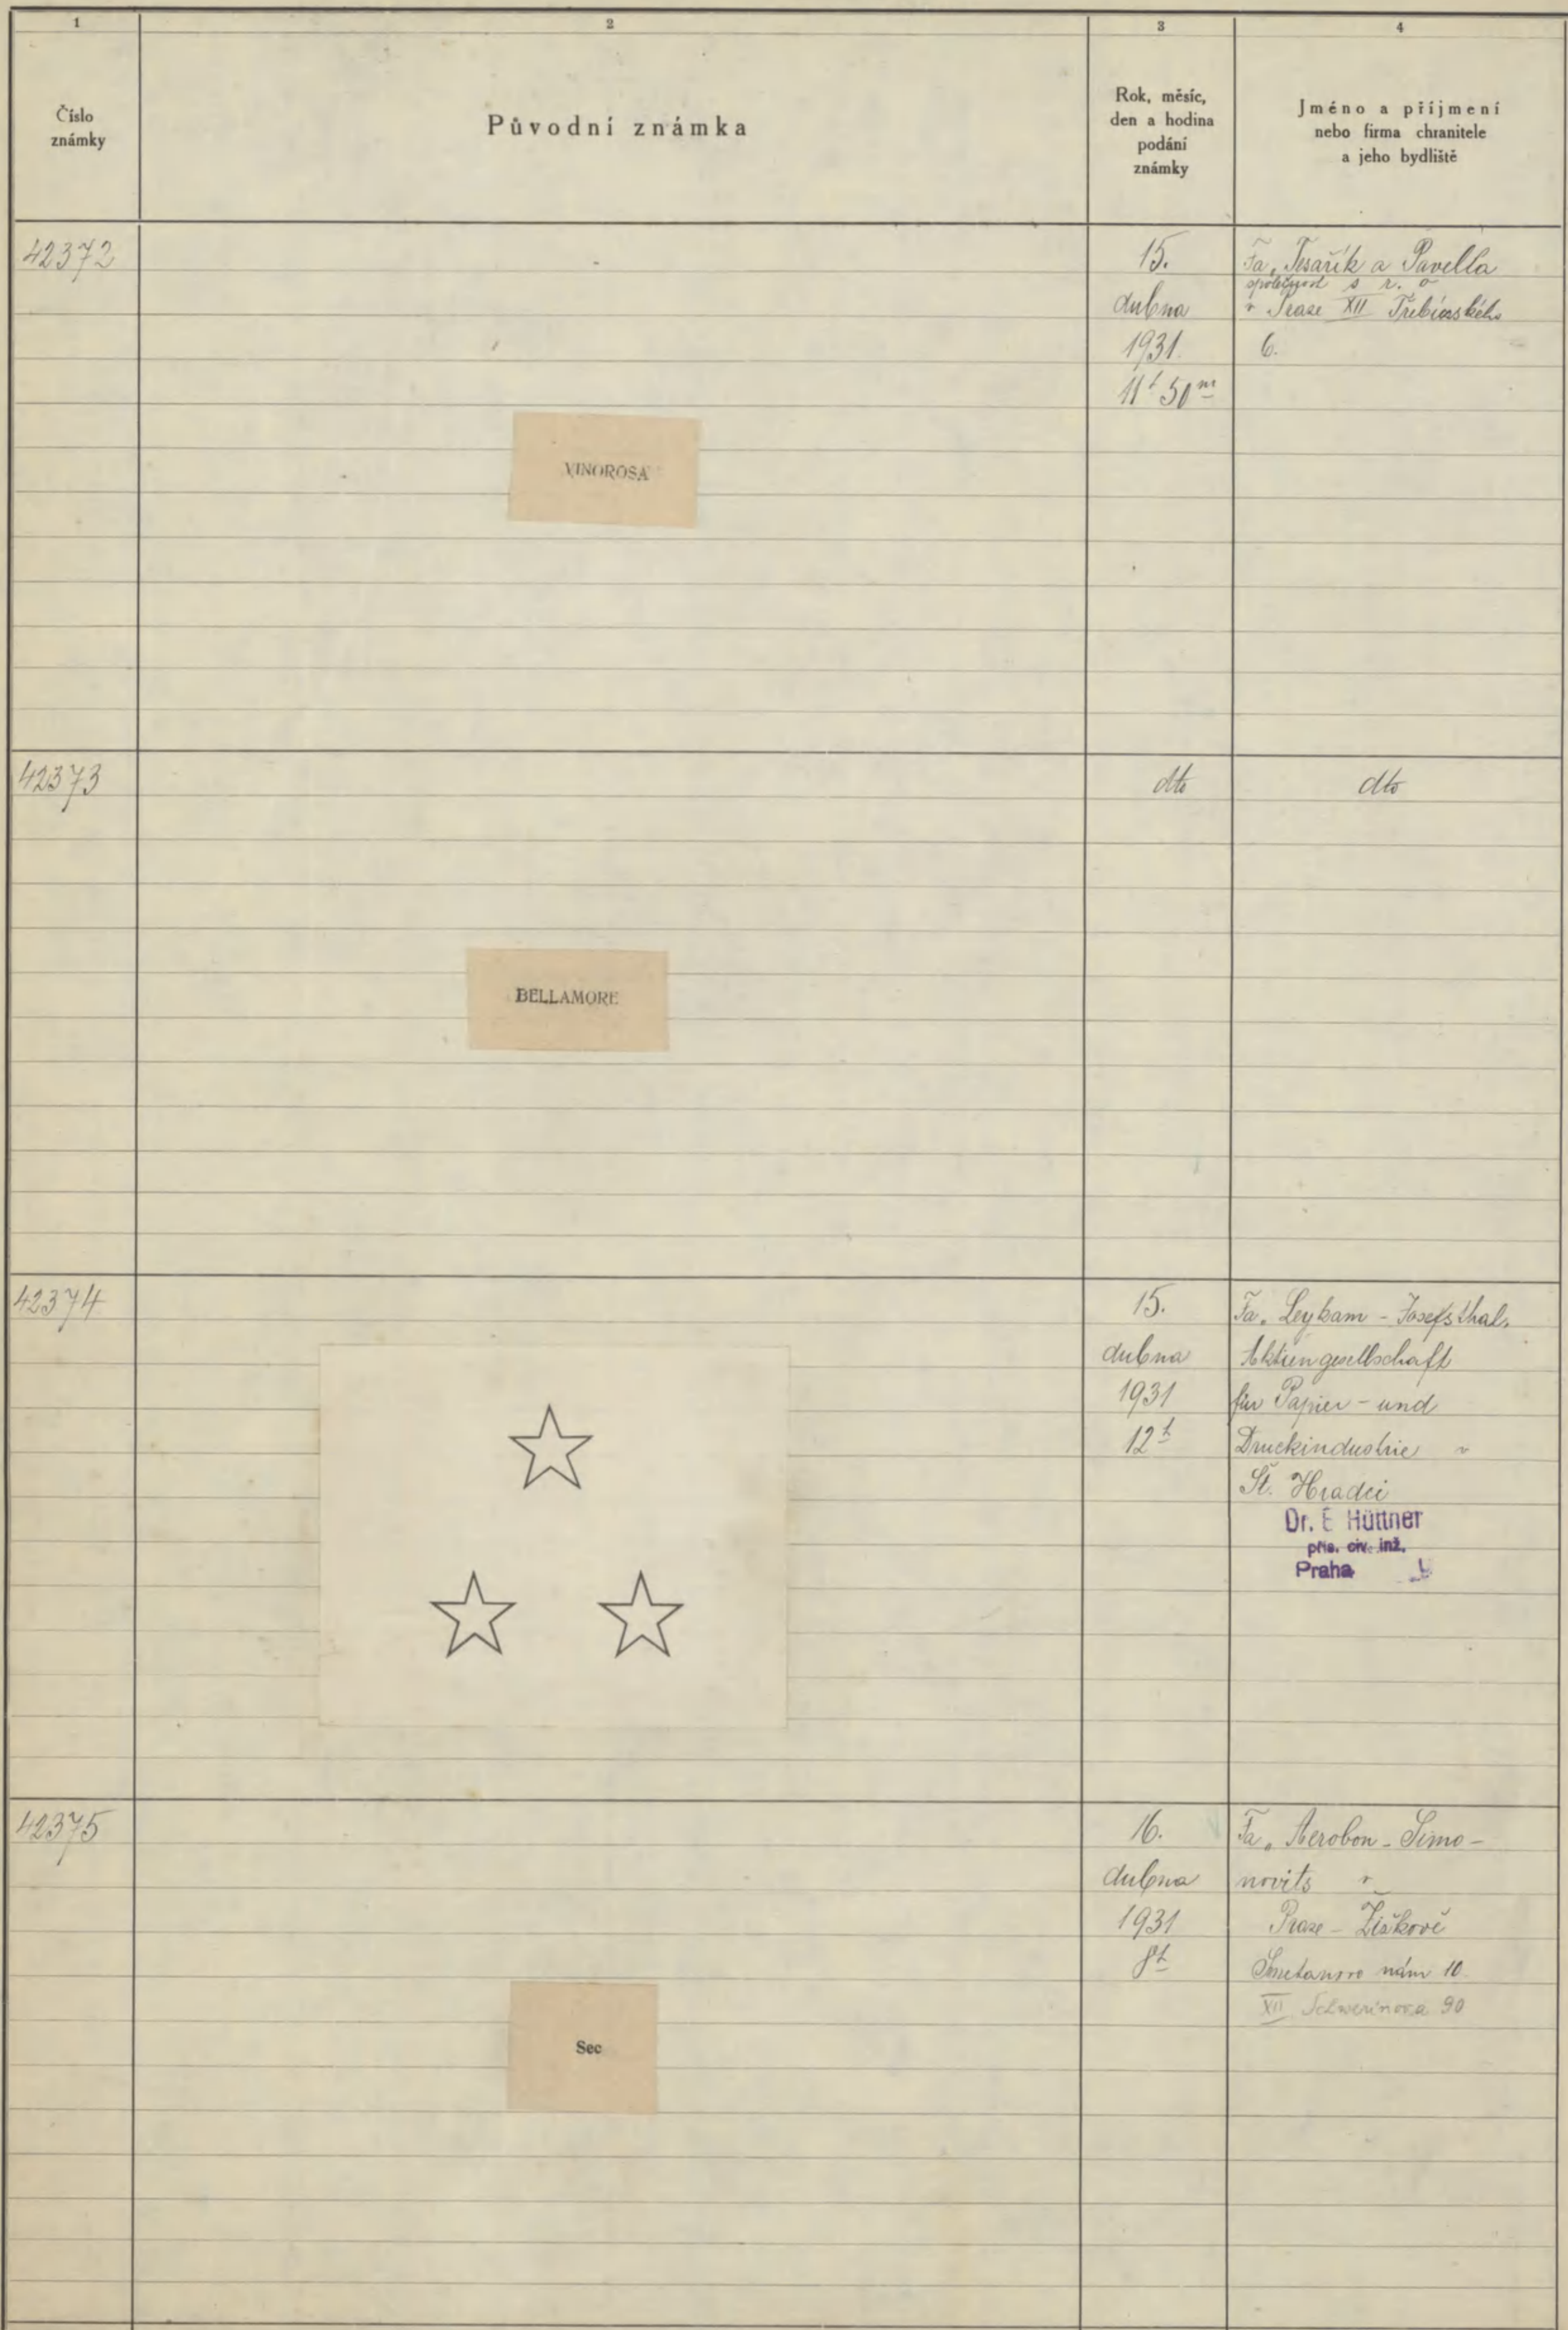 1
2
3
4
Číslo
známky
Původní známka
Rok, měsíc,
den a hodina
podání
známky
Jméno a příjmení
nebo firma chranitele
a jeho bydliště
42372
15.
dubna
1931.
11h 50m
Fa. Tesařík a Pavella
společnost s r. o
v Praze XII Třebízského
6.
VINOROSA
42373
dto
dto
BELLAMORE
42374
15.
dubna
1931
12h
Fa. Leykam - Josefsthal,
Aktiengesellschaft
für Papier - und
Druckindustrie v
Št. Hradci
Dr. E Hüttner
přís. civ. inž.
Praha
42375
16.
dubna
1931
8h
Fa. Aerobon - Simo-
novits v
Praze - Žižkově
Smetanovo nám 10
XII Schwerinova 90
Sec